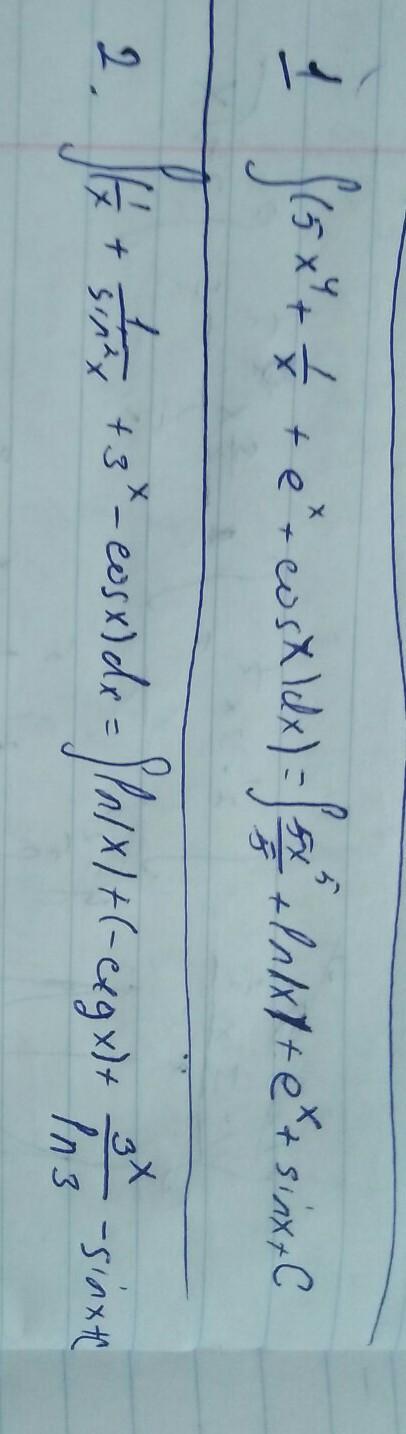 1 ∫(5x⁴ + 1/x + eˣ + cosx)dx) = ∫ 5x⁵/5 + ln|x| + eˣ + sinx + C
2. ∫(1/x + 1/sin²x + 3ˣ - cosx)dx = ∫ ln|x| + (-ctgx) + 3ˣ/ln3 - sinx + C